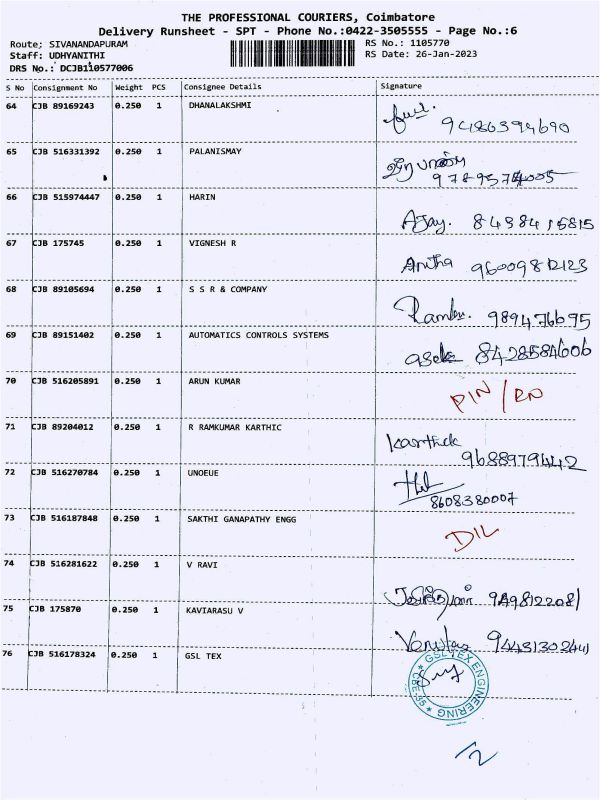 THE PROFESSIONAL COURIERS, Coimbatore
Delivery Runsheet - SPT - Phone No.:0422-3505555 - Page No.:6
Route; SIVANANDAPURAM RS No.: 1105770
Staff: UDHYANITHI RS Date: 26-Jan-2023
DRS No.: DCJB110577006
S No Consignment No Weight PCS Consignee Details Signature
64 CJB 89169243 0.250 1 DHANALAKSHMI
9486394690
65 CJB 516331392 0.250 1 PALANISMAY
9789574005
66 CJB 515974447 0.250 1 HARIN
Ajay. 8438415815
67 CJB 175745 0.250 1 VIGNESH R
Anitha 96009812123
68 CJB 89105694 0.250 1 S S R & COMPANY
989476695
69 CJB 89151402 0.250 1 AUTOMATICS CONTROLS SYSTEMS
8428584606
70 CJB 516205891 0.250 1 ARUN KUMAR
PIN/RN
71 CJB 89204012 0.250 1 R RAMKUMAR KARTHIC
Karthick
9688979442
72 CJB 516270784 0.250 1 UNOEUE
8608380007
73 CJB 516187848 0.250 1 SAKTHI GANAPATHY ENGG
DIL
74 CJB 516281622 0.250 1 V RAVI
75 CJB 175870 0.250 1 KAVIARASU V
76 CJB 516178324 0.250 1 GSL TEX
GSL TEX ENGINEERING
CBE-35